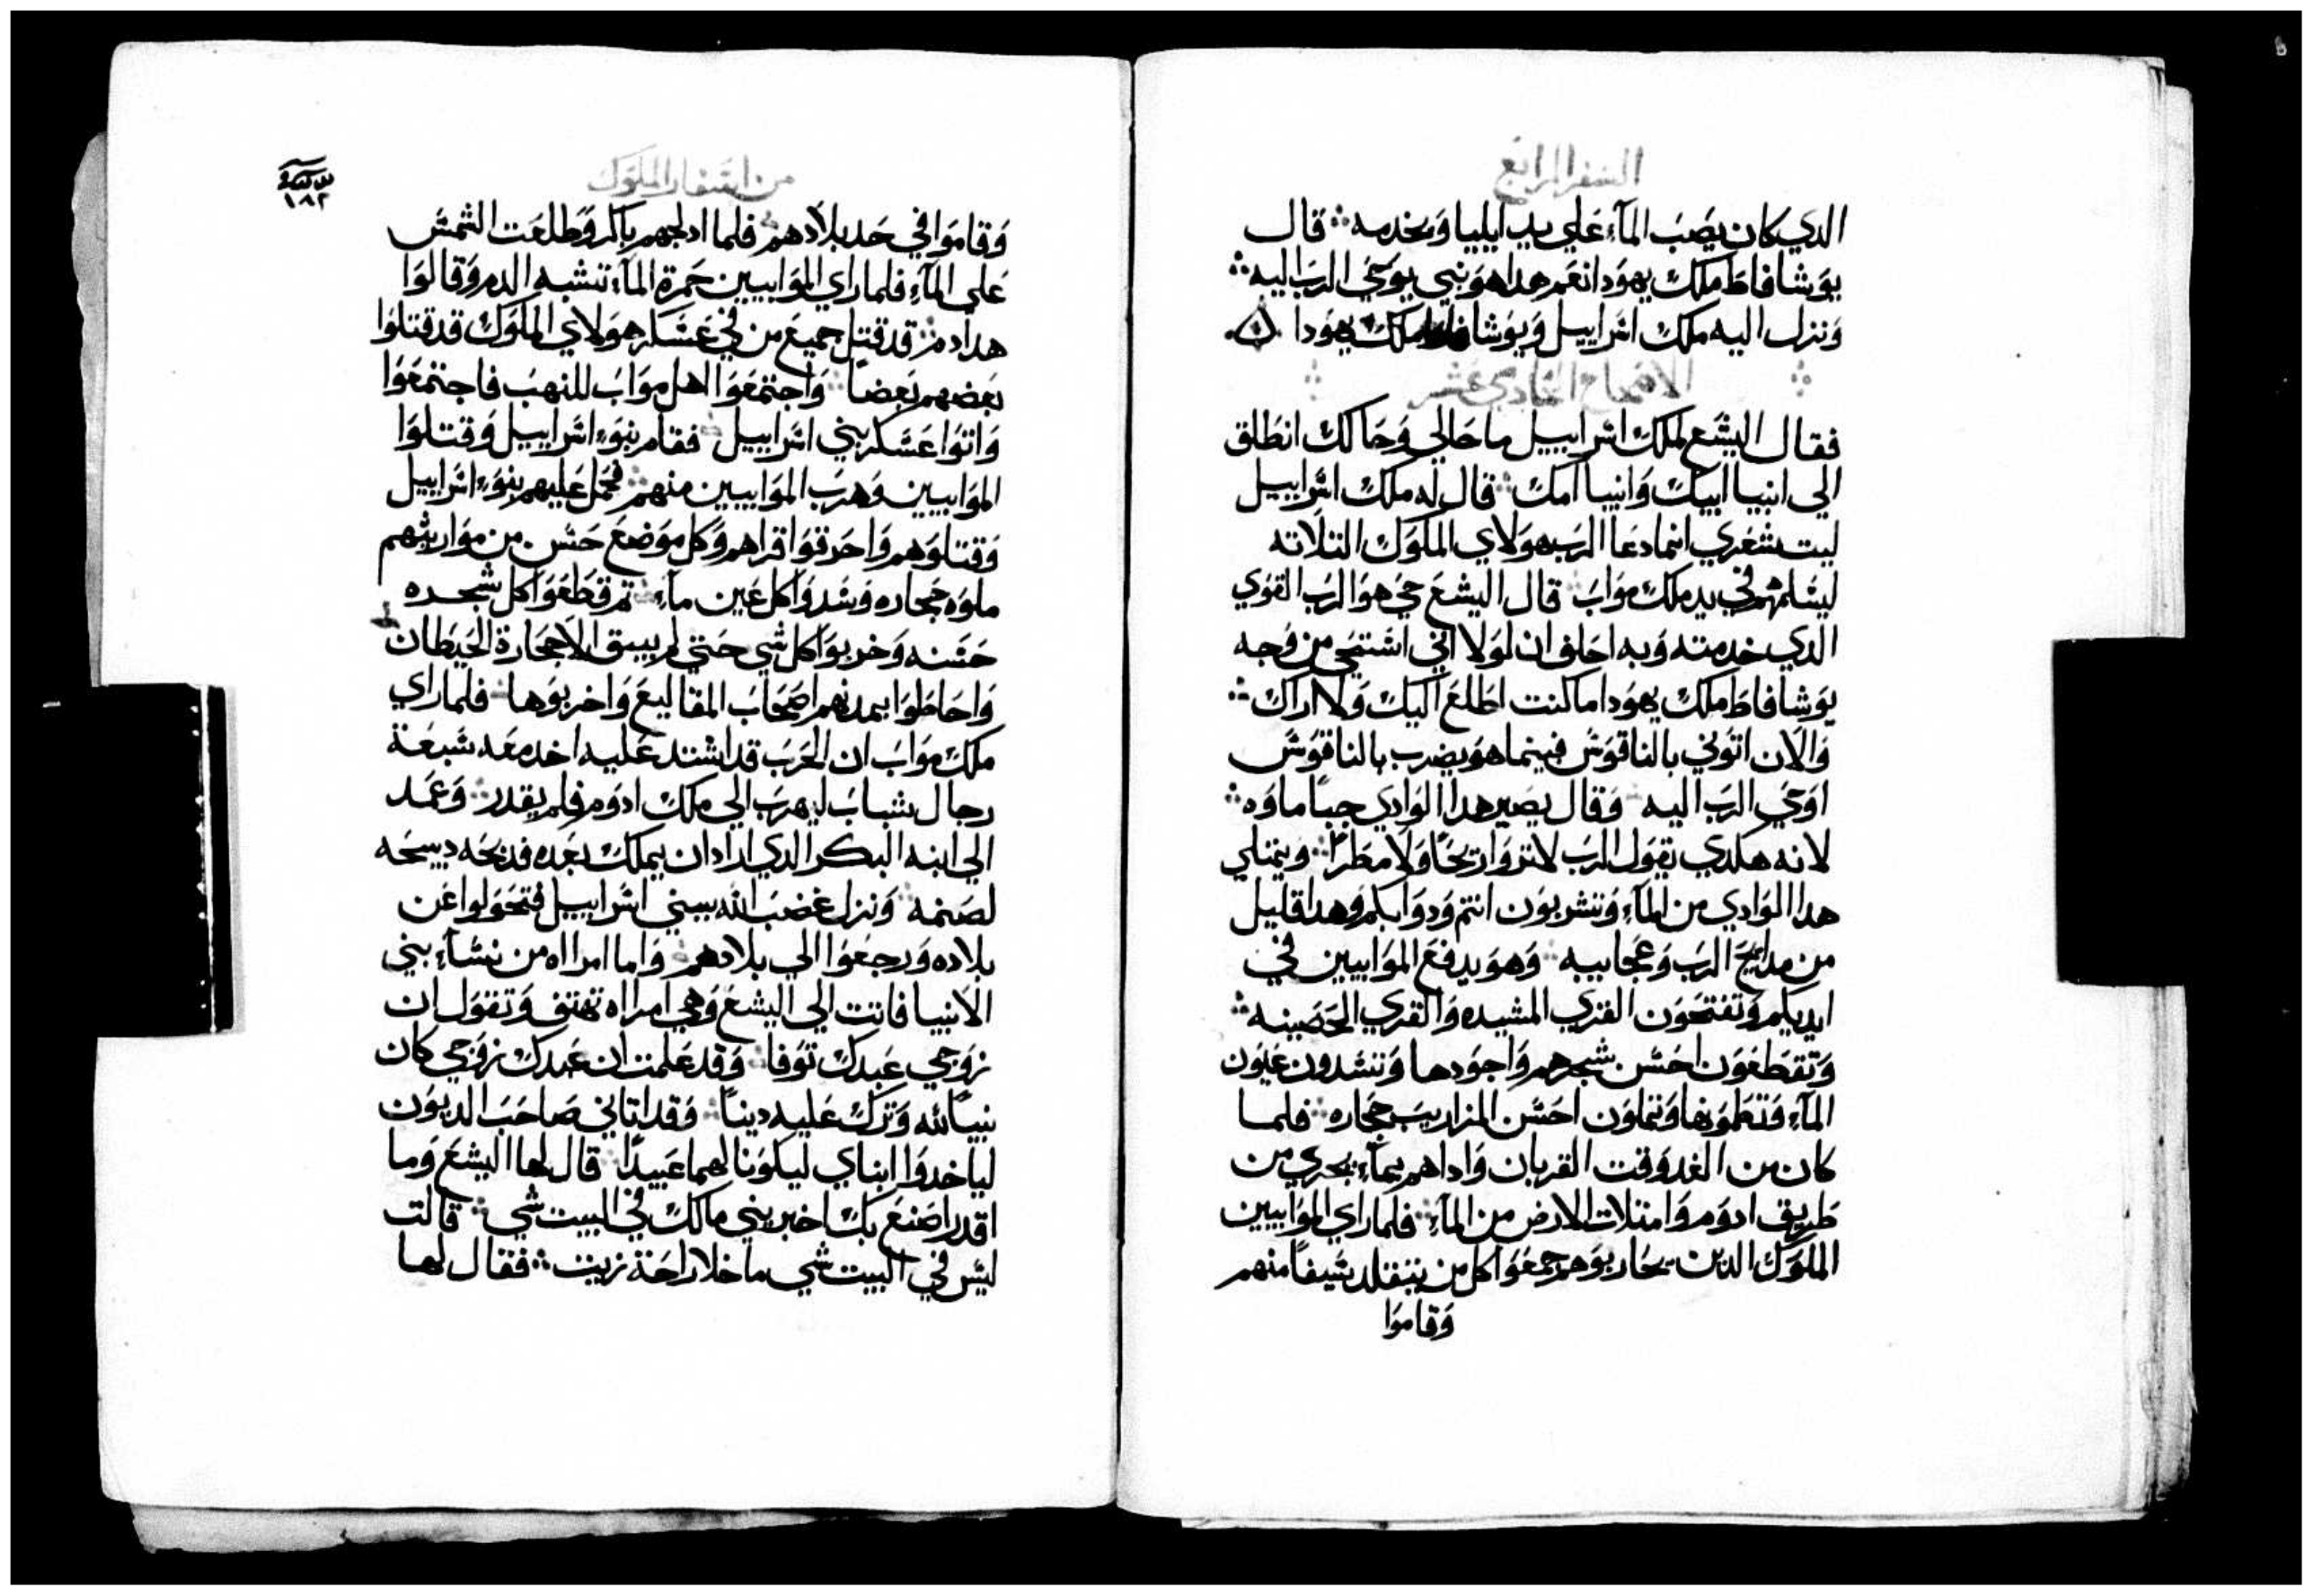 السفر الرابع
الدي كان يصب المآء علي يد ايليا ويخدمه قال
يوشافاط ملك يهودا نعم هدا هو نبي يوحي الرب اليه
ونزل اليه ملك اسراييل ويوشافاط ملك يهودا
الاصحاح الحادي عشر
فقال اليشع لملك اسراييل ما حالي وحالك انطلق
الي انبيا ابيك وانبيا امك قال له ملك اسراييل
ليت شعري انما دعا الرب هولاي الملوك التلاته
ليسلمهم في يد ملك مواب قال اليشع حي هو الرب القوي
الدي خدمته وبه احلف ان لولا اني استحي من وجه
يوشافاط ملك يهودا ما كنت اطلع اليك ولا اراك
والان اتوني بالناقوس فبينما هو يضرب بالناقوس
اوحي الرب اليه وقال يصير هدا الوادي جبا ماوه
لانه هكدي يقول الرب لا تروا ريحا ولا مطرا ويمتلي
هدا الوادي من المآء وتشربون انتم ودوابكم وهدا قليل
من مدايح الرب وعجايبه وهو يدفع الموابيين في
ايديكم وتفتحون القري المشيده والقري الحصينه
وتقطعون احسن شجرهم واجودها وتسدون عيون
المآء وتطموها وتملون احسن المزاريب حجاره فلما
كان من الغد وقت القربان واداهم بمآء يجري من
طريق ادوم وامتلات الارض من المآء فلما راي الموابيين
الملوك الدين يحاربوهم جمعوا كل من يتقلد سيفا منهم
وقاموا
من اسفار الملوك
١٨٢
وقاموا في حد بلادهم فلما ادلجهم باكر وطلعت الشمس
علي المآء فلما راي الموابيين حمرة المآء تشبه الدم وقالوا
هدا دم قد قتل جميع من في عسكر هولاي الملوك قد قتلوا
بعضهم بعضا واجتمعوا اهل مواب للنهب فاجتمعوا
واتوا عسكر بني اسراييل فقام بنوء اسراييل وقتلوا
الموابيين وهرب الموابيين منهم فحمل عليهم بنوء اسراييل
وقتلوهم واحرقوا قراهم وكل موضع حسن من مواريثهم
ملوه حجاره وسدوا كل عين مآء تم قطعوا كل شجره
حسنه وخربوا كل شي حتي لم يبق الا حجارة الحيطان
واحاطوا بمدنهم اصحاب المقاليع واخربوها فلما راي
ملك مواب ان الحرب قد اشتد عليه اخد معه سبعة
رجال شباب ليهرب الي ملك ادوم فلم يقدر وعمد
الي ابنه البكر الدي اراد ان يملك بعده فدبحه دبيحه
لصنمه ونزل غضب الله ببني اسراييل فتحولوا عن
بلاده ورجعوا الي بلادهم واما امراه من نسآء بني
الانبيا فاتت الي اليشع وهي امراه تهتف وتقول ان
زوجي عبدك توفا وقد علمت ان عبدك زوجي كان
نبيا لله وترك عليه دينا وقد اتاني صاحب الديون
لياخدوا ابناي ليكونا لهما عبيدا قال لها اليشع وما
اقدر اصنع بك اخبريني مالك في البيت شي قالت
ليس في البيت شي ما خلا راحة زيت فقال لها